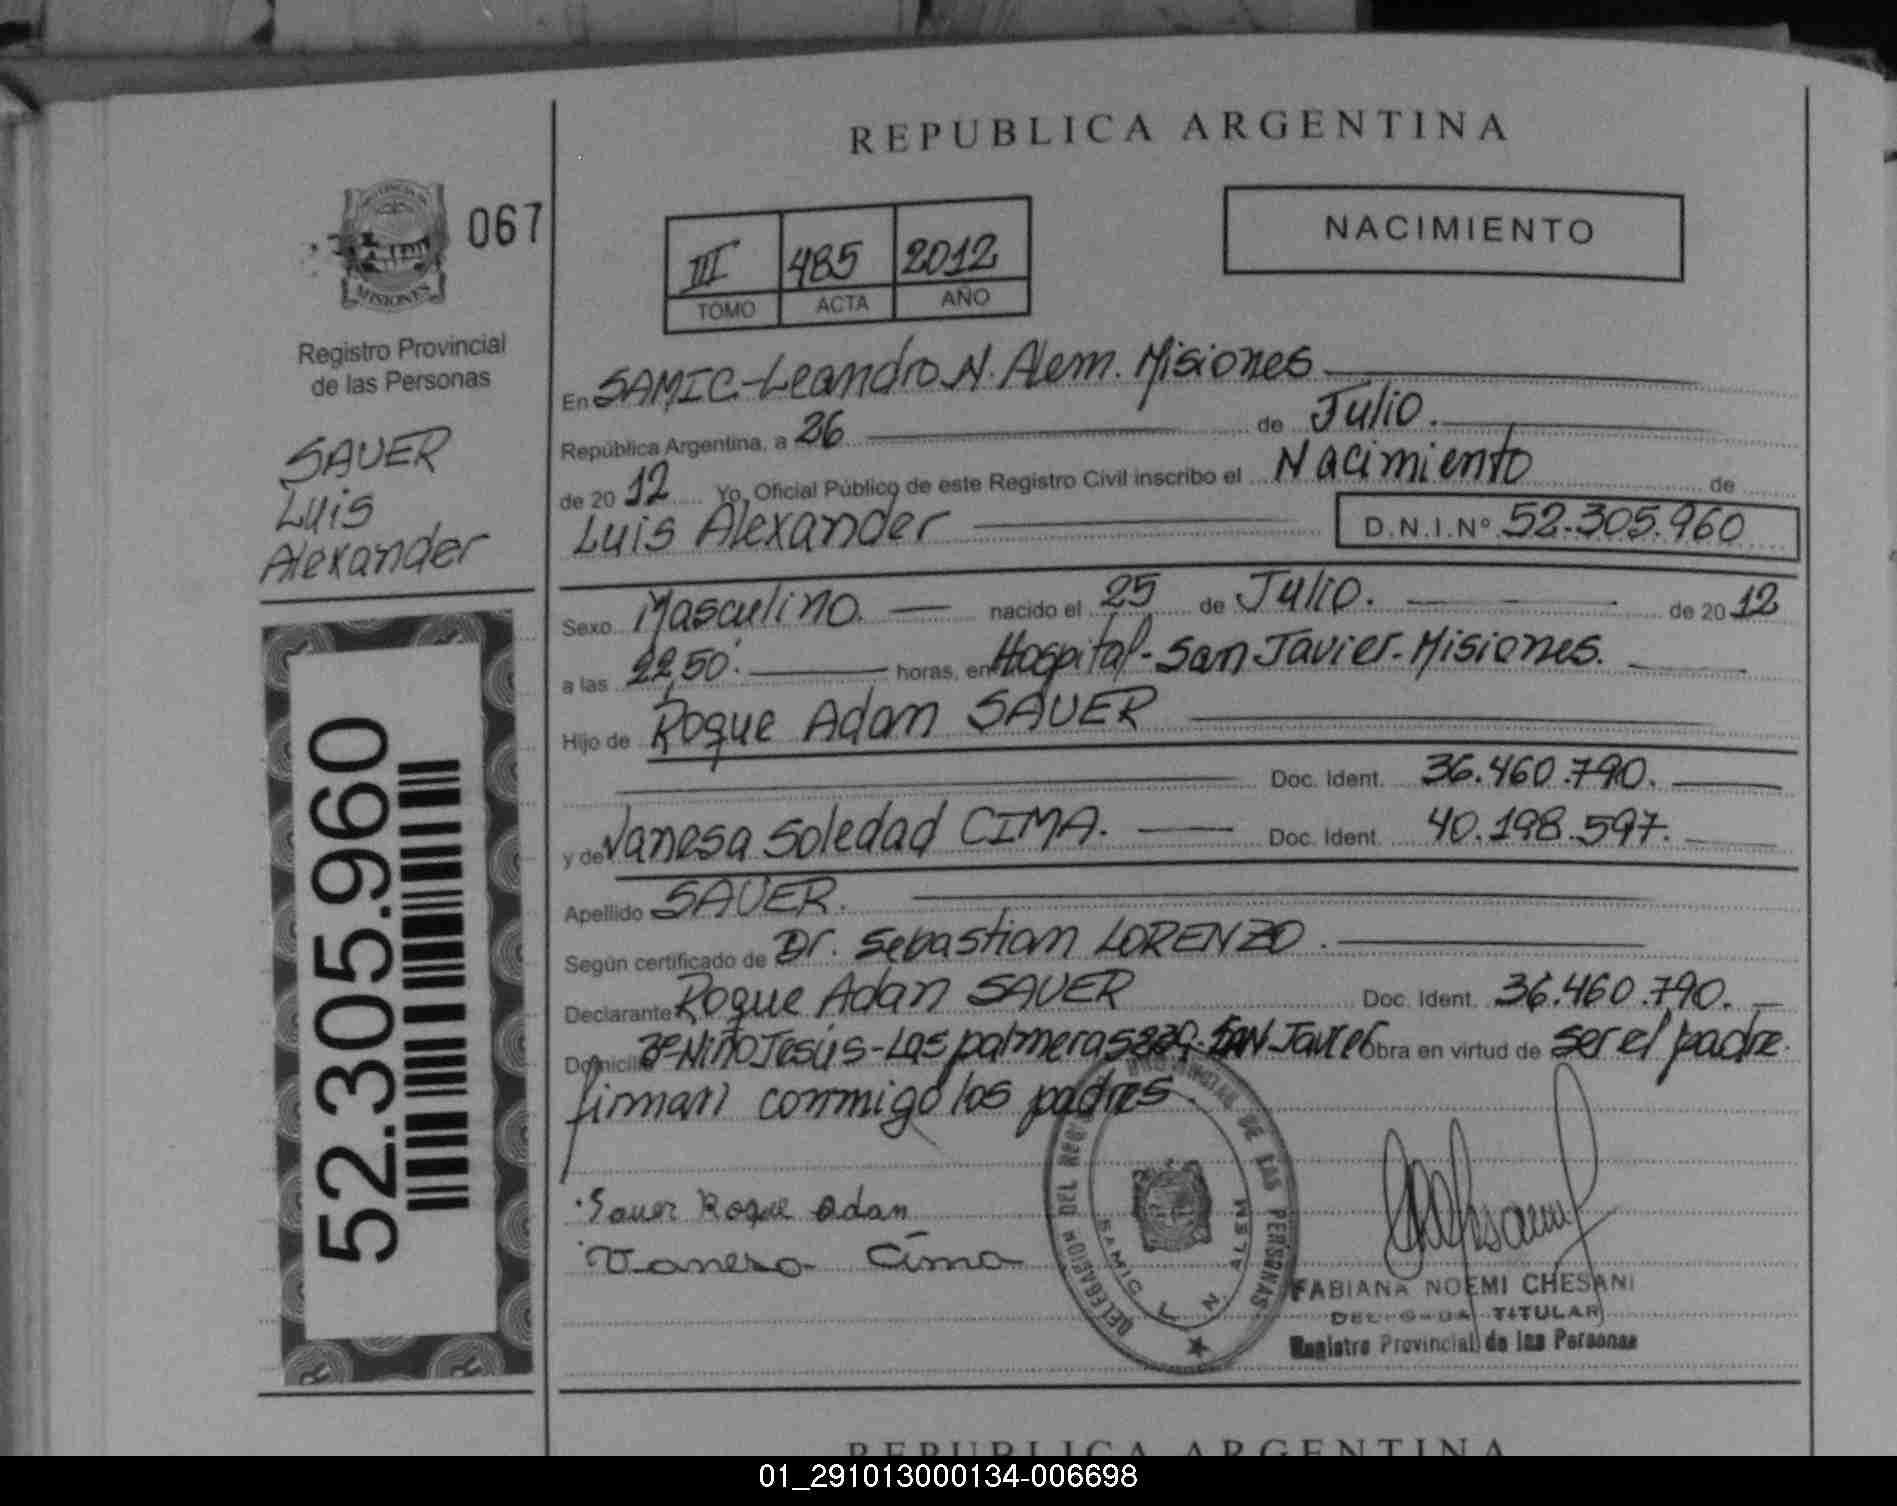 REPUBLICA ARGENTINA
PROVINCIA DE MISIONES
067
Registro Provincial
de las Personas
SAUER
Luis
Alexander
52.305.960
III 485 2012
TOMO ACTA AÑO
NACIMIENTO
En SAMIC-Leandro N. Alem. Misiones
República Argentina, a 26 de Julio.
de 2012 Yo, Oficial Público de este Registro Civil inscribo el Nacimiento de
Luis Alexander D.N.I.Nº 52.305.960
Sexo Masculino. nacido el 25 de Julio. de 2012
a las 22,50. horas, en Hospital-San Javier-Misiones.
Hijo de Roque Adan SAUER
Doc. Ident. 36.460.790.
y de Vanesa Soledad CIMA. Doc. Ident. 40.198.597.
Apellido SAUER.
Según certificado de Dr. Sebastian LORENZO.
Declarante Roque Adan SAUER Doc. Ident. 36.460.790.
Domicilio Bº Niño Jesús-Las palmeras SAN Javier Obra en virtud de ser el padre.
firman conmigo los padres.
Sauer Roque Adan
Vanesa Cima
DELEGACION DEL REGISTRO PROVINCIAL DE LAS PERSONAS
SAMIC L. N. ALEM
FABIANA NOEMI CHESANI
DELEGADA TITULAR
Registro Provincial de las Personas
REPUBLICA ARGENTINA
01_291013000134-006698